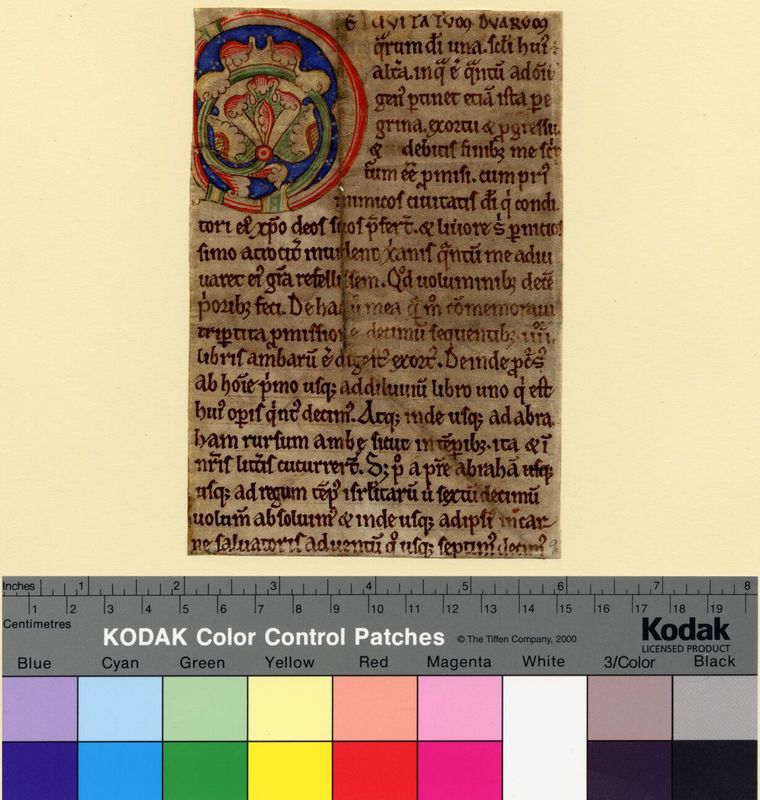 E CIVITATUM DVARUM
qͣrum d̄i una. sc̄li huiꝰ
alt̄a. in q̄ ē q̄ntū ad oīū
genꝰ ꝑtinet etiā ista pe
grina. exortu & ꝓgressu.
& debitis finibꝫ me sc̄r
tum eē ꝓmisi. cum priꝰ
inimicos ciuitatis d̄i q̇ condi
tori eiꝰ xp̄o deos suos p̄fert̄. & liuore s̄ ꝑnitio
simo atrocit̄ inuident xanis q̄ntū me adiu
uaret eiꝰ gr̄a refellissem. Qd̄ uoluminibꝫ decē
p̓oribꝫ feci. De hac ū mea q̄ m̊ cōmemoraui
tripertita ꝓmissione decimū sequentibꝫ iiii.ᵒʳ
libris ambarū ē digestꝰ exortꝰ. Deinde ꝓc̄sꝰ
ab hoīe p̓mo usqꝫ ad diluuiū libro uno q̇ est
huiꝰ opis q̇ntꝰ decimꝰ. Atqꝫ inde usqꝫ ad abra
ham rursum ambę sicut in tēp̄ibꝫ. ita & ī
nr̄is litt̄is cucurrer̄t. Sꝫ ꝓ a p̄re abrahā usqꝫ
usqꝫ ad regum tēpꝰ isrl̄itarū ū sextū decimū
uolum̄ absoluimꝰ & inde usqꝫ ad ipsi in car
ne saluatoris aduentū q̊ usqꝫ septimꝰ decimꝰ
9
Inches 1 2 3 4 5 6 7 8
1 2 3 4 5 6 7 8 9 10 11 12 13 14 15 16 17 18 19
Centimetres
KODAK Color Control Patches © The Tiffen Company, 2000 Kodak
LICENSED PRODUCT
Blue Cyan Green Yellow Red Magenta White 3/Color Black